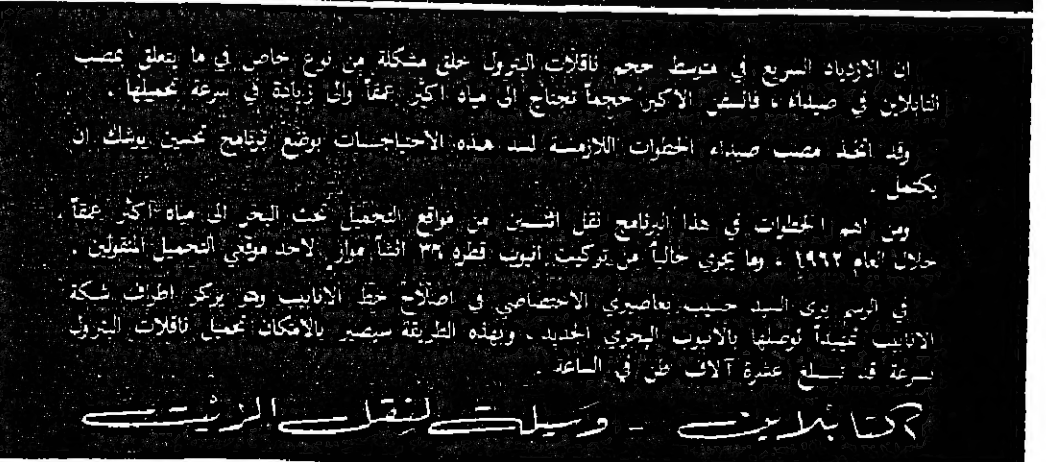 ان الازدياد السريع في متوسط حجم ناقلات البترول خلق مشكلة من نوع خاص في ما يتعلق بمصب
التابلاين في صيداء ، فالسفن الاكبر حجماً تحتاج الى مياه اكثر عمقاً والى زيادة في سرعة تحميلها .
وقد اتخذ مصب صيداء الخطوات اللازمـــة لسد هـذه الاحتياجـــات بوضع برنامج تحسين يوشك ان
يكتمل .
ومن اهم الخطوات في هذا البرنامج نقل اثنـــين من مواقع التحميل تحت البحر الى مياه اكثر عمقاً .
خلال العام ١٩٦٢ ، وما يجري حالياً من تركيب انبوب قطره ٣٦ انشاً مواز لاحد موقعي التحميل المنقولين .
في الرسم يرى السيد حسيب بعاصيري الاختصاصي في اصلاح خط الانابيب وهو يركز اطراف شبكة
الانابيب تمهيداً لوصلها بالانبوب البحري الجديد . وبهذه الطريقة سيصير بالامكان تحميل ناقلات البترول
بسرعة قد تبـــلغ عشرة آلاف طن في الساعة .
تابلاين - وسيلة لنقل الزيت